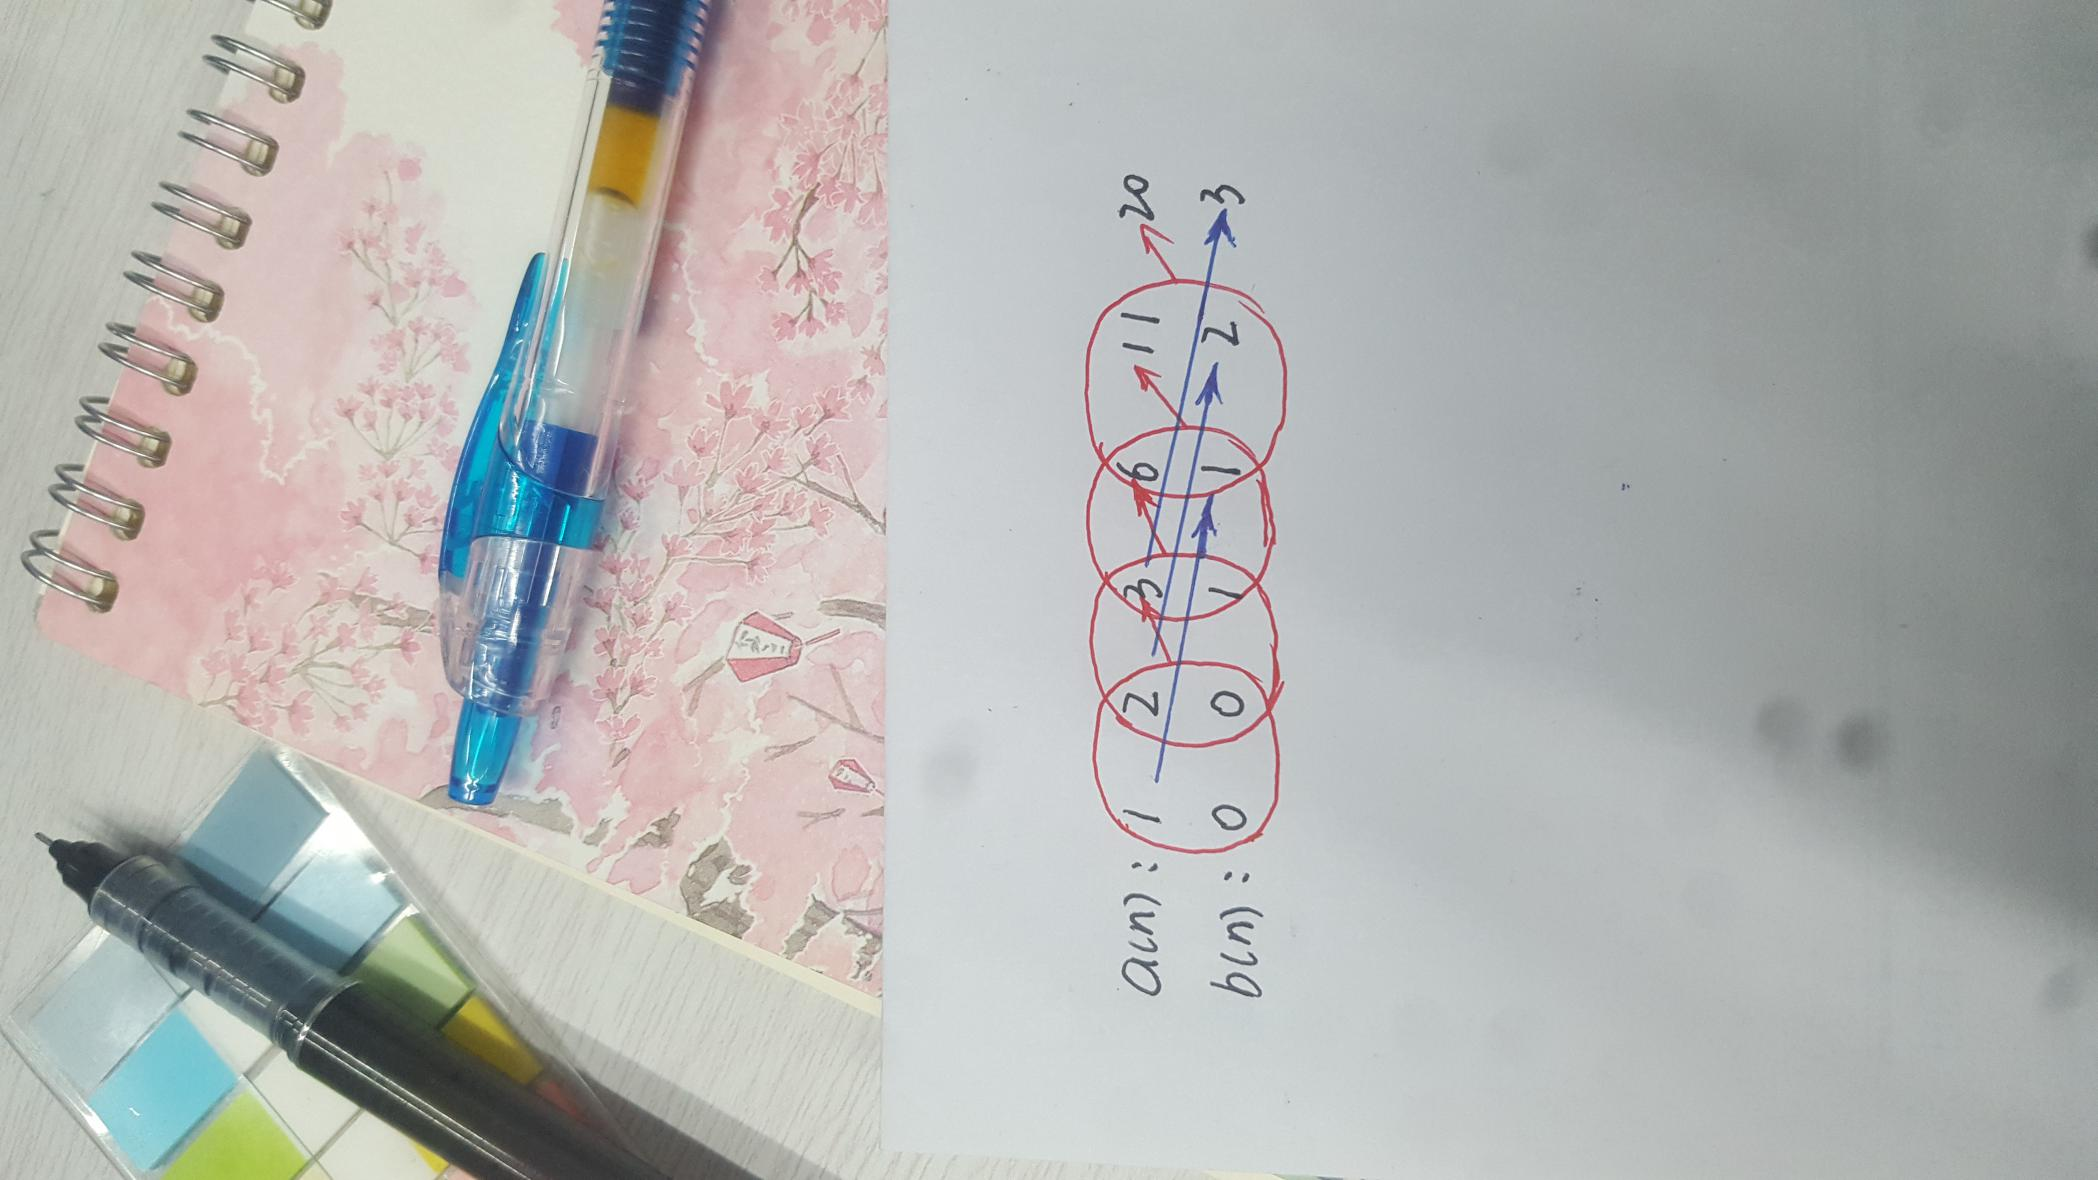 a(n): 1 2 3 6 11 20
b(n): 0 0 1 1 2 3